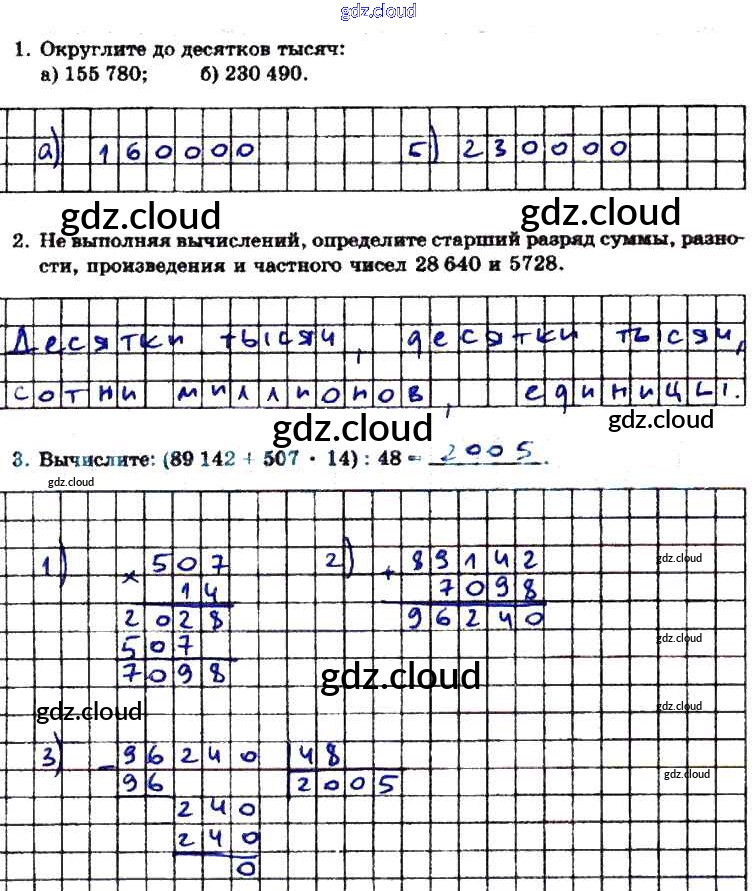 gdz.cloud
1. Округлите до десятков тысяч:
а) 155 780; б) 230 490.
а) 160000 б) 230000
gdz.cloud gdz.cloud
2. Не выполняя вычислений, определите старший разряд суммы, разно-
сти, произведения и частного чисел 28 640 и 5728.
Десятки тысяч, десятки тысяч,
сотни миллионов, единицы.
gdz.cloud gdz.cloud
3. Вычислите: (89 142 + 507 · 14) : 48 = 2005.
gdz.cloud
1) 507 2) 89142
× 14 + 7098
2028 96240
507
7098
gdz.cloud
gdz.cloud
gdz.cloud
gdz.cloud gdz.cloud
3) - 96240 48
96 2005
gdz.cloud
240
240
0